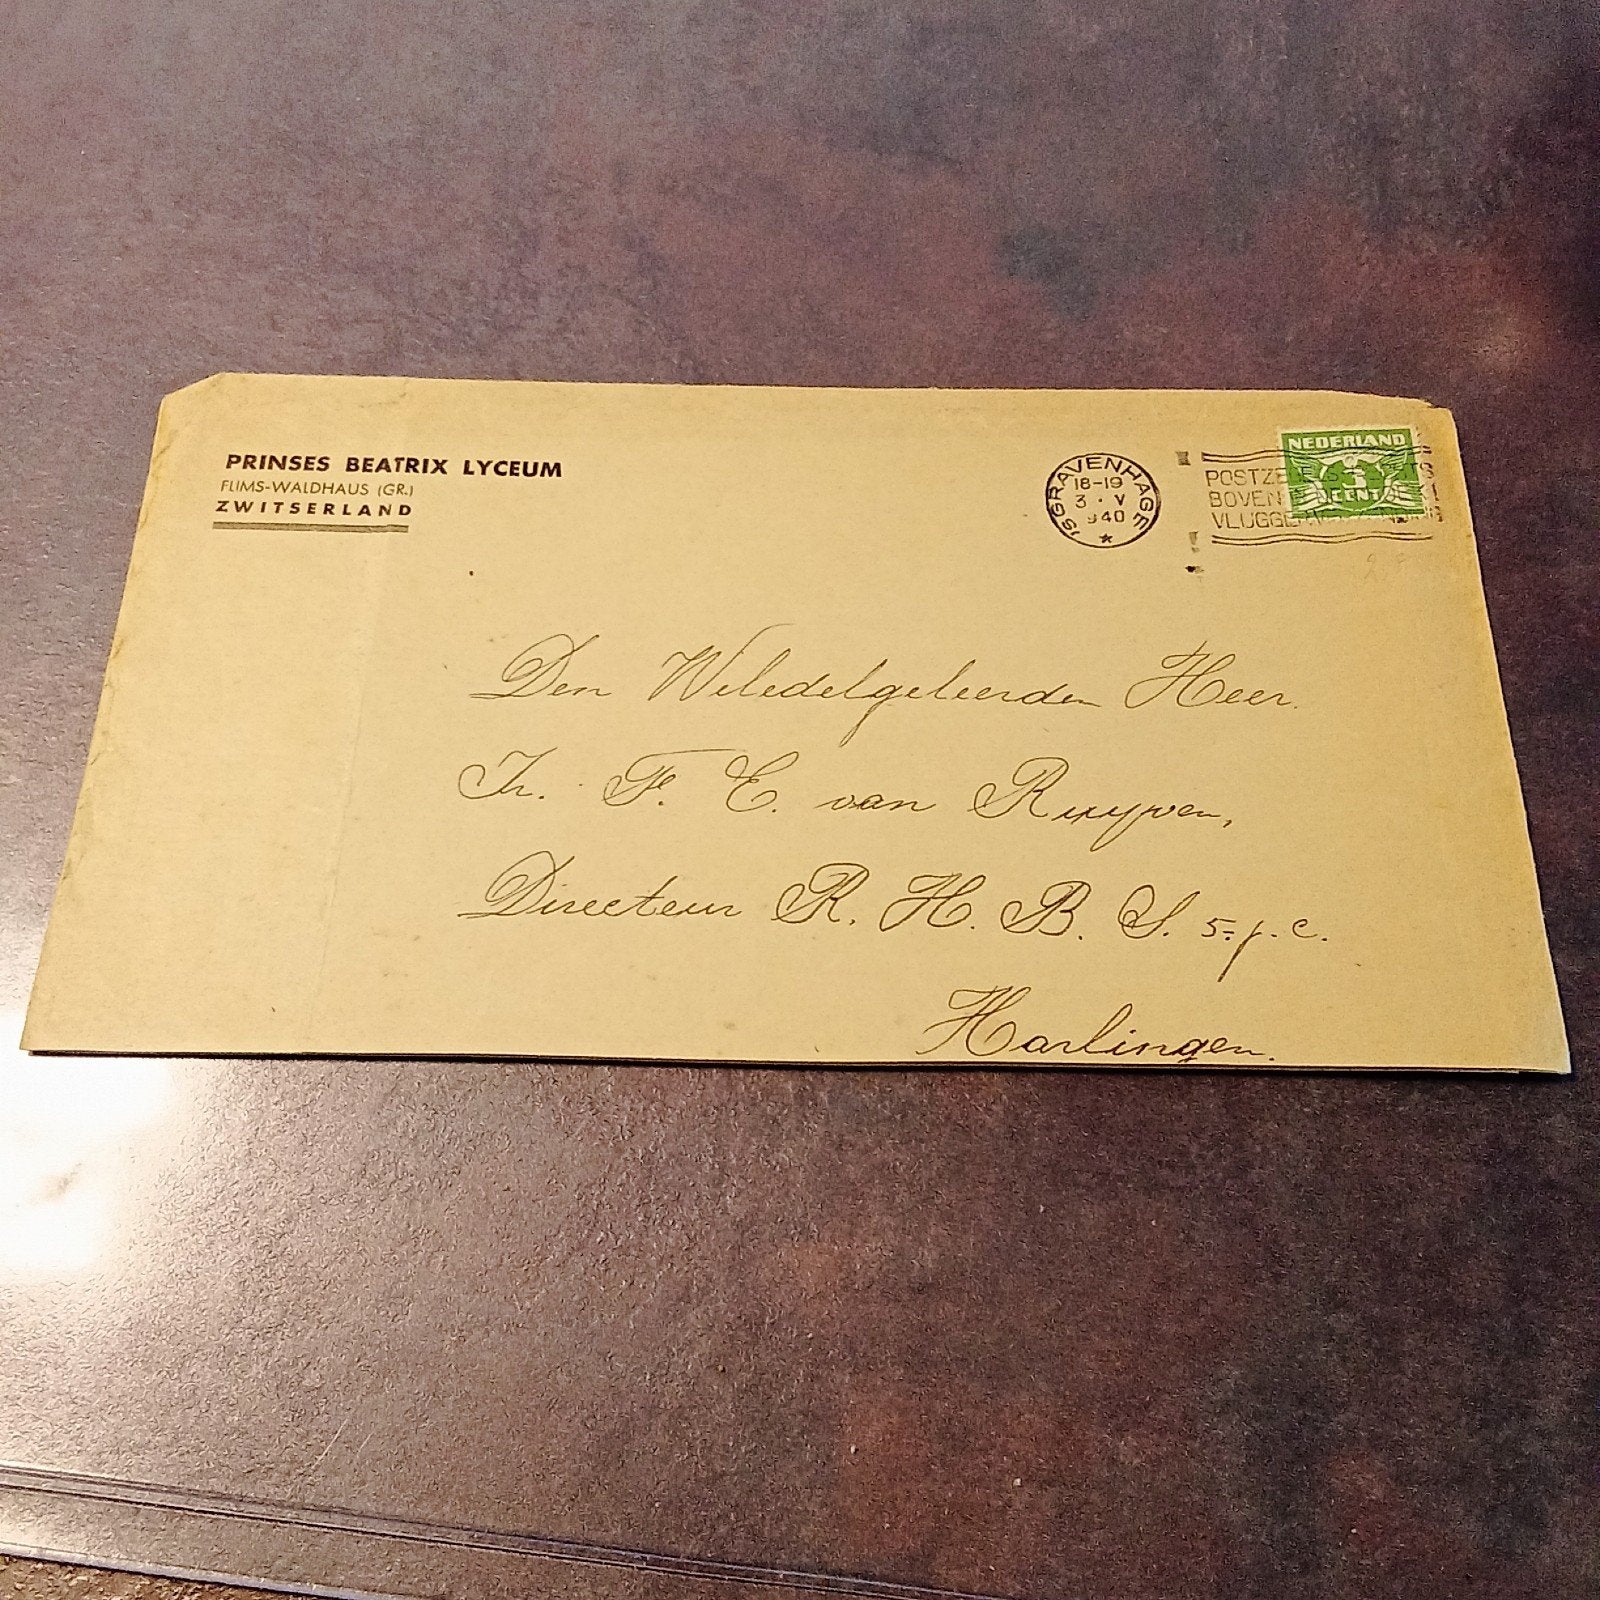 PRINSES BEATRIX LYCEUM
FLIMS-WALDHAUS (GR.)
ZWITSERLAND
'SGRAVENHAGE
18-19
3 · V
940
POSTZE
BOVEN
VLUGGE
NEDERLAND
3
CENT
Den Weledelgeleerden Heer.
Ir. F. E. van Ruyven,
Directeur R. H. B. S. 5-j. c.
Harlingen.